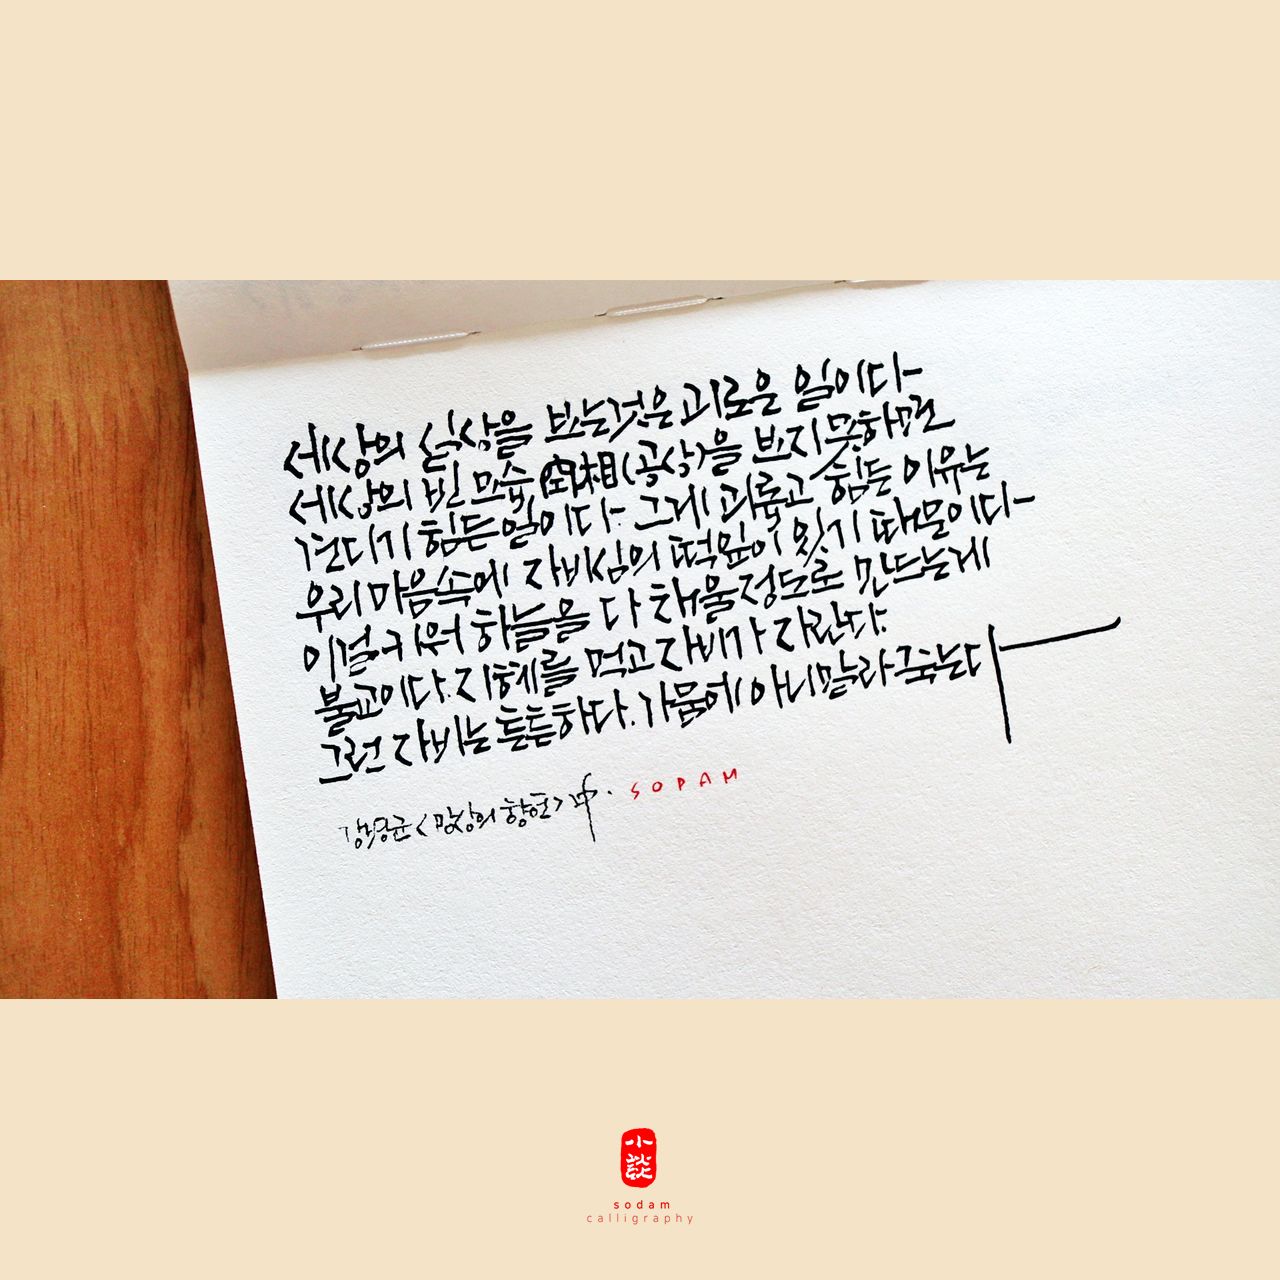 세상의 실상을 보는것은 괴로운 일이다-
세상의 빈 모습, 空相(공상)을 보지 못하면
견디기 힘든 일이다. 그게 괴롭고 힘든 이유는
우리 마음속에 자비심의 떡잎이 있기 때문이다-
이걸 키워 하늘을 다 채울 정도로 만드는게
불교이다. 지혜를 먹고 자비가 자란다.
그런 자비는 튼튼하다. 가뭄에 아니 말라 죽는다
강병균 <망상의 향연> 中. SODAM
小談
sodam
calligraphy